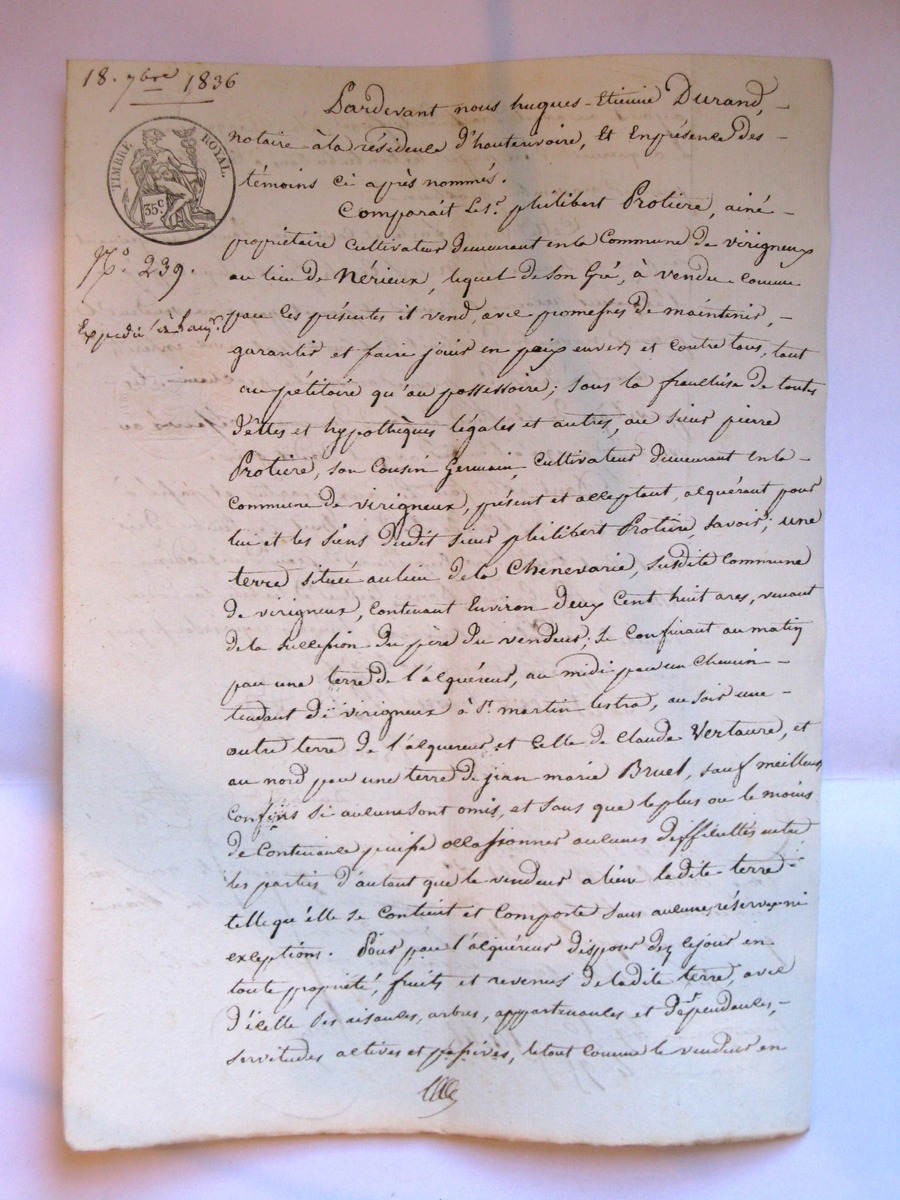 18. 7bre 1836
TIMBRE ROYAL.
35c
No. 239.
Expedié
Pardevant nous hugues-Etienne Durand,
notaire à la résidence d'hauterivoire, Et En présence des
témoins ci après nommés.
Comparait Le Sr. philibert Protière, ainé
propriétaire cultivateur demeurant en la Commune de virigneux
au lieu de Nérieux, lequel de son Gré, à vendu comme
par ces présentes il vend, avec promesses de maintenir,
garantir et faire jouir en paix envers et contre tous, tant
au pétitoire qu'au possessoire; sous la franchise de toutes
dettes et hypothèques légales et autres, au sieur pierre
Protière, son Cousin Germain, Cultivateur demeurant en la
commune de virigneux, présent et acceptant, acquérant pour
lui et les siens dudit sieur philibert Protière, savoir; une
terre située au lieu de la Chenevarie, susdite commune
de virigneux, contenant Environ deux Cent huit ares, venant
de la succession du père du vendeur; se confinant au matin
par une terre de l'acquéreur, au midi par un chemin
tendant de virigneux à St. martin lestra, au soir une
autre terre de l'acquereur et celle de Claude Vertaure, et
au nord par une terre de jean marie Bruel, sauf meilleurs
confins si aucuns sont omis, et sans que le plus ou le moins
de contenance puisse occassionner aucunes difficultés entre
les parties d'autant que le vendeur aliène ladite terre
telle qu'elle se contient et comporte sans aucune réserve ni
exceptions. Pour par l'acquéreur disposer dez ce jour en
toute propriété, fruits et revenus de ladite terre, avec
d'icelle les aisances, arbres, appartenances et dépendances,
servitudes actives et passives, le tout comme le vendeur en